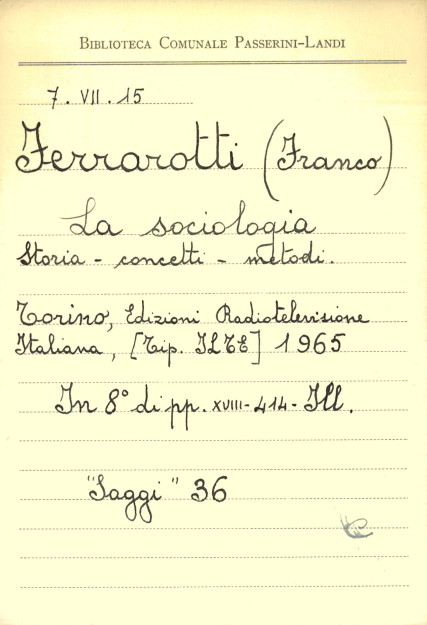 BIBLIOTECA COMUNALE PASSERINI-LANDI
7. VII. 15
Ferrarotti (Franco)
La sociologia
Storia - concetti - metodi.
Torino, Edizioni Radiotelevisione
Italiana, [Tip. ILTE] 1965
In 8° di pp. XVIII-414- Ill.
"Saggi" 36